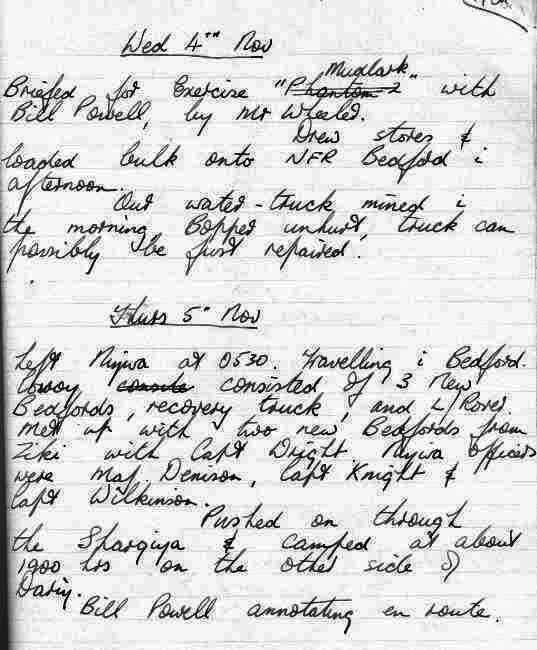 Wed 4th Nov
Mudlark
Briefed for Exercise "Phantom 2" with
Bill Powell, by Mr Wheeler.
Drew stores &
loaded bulk onto NFR Bedford i
afternoon.
Our water-truck mined i
the morning Bopped unhurt, truck can
possibly be just repaired.
Thurs 5th Nov
Left Nizwa at 0530. Travelling i Bedford.
Convoy consists consisted of 3 New
Bedfords, recovery truck, and L/Rover.
Met up with two new Bedfords from
Ziki with Capt Dright. Nizwa officers
were Maj. Denison, Capt Knight &
Capt Wilkinson.
Pushed on through
the Sharqiya & camped at about
1900 hrs on the other side of
Dariz.
Bill Powell annotating en route.